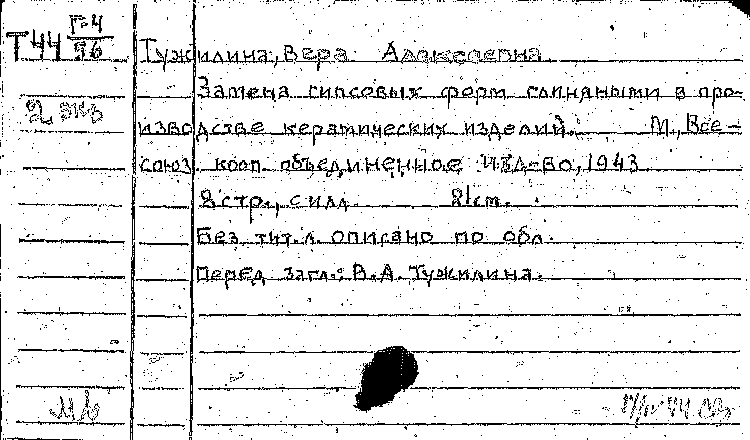 Т44 Г-4
56
Тужилина, Вера Алексеевна
Замена гипсовых форм глиняными в про-
2 экз
изводстве керамических изделий. М., Все-
союз. кооп. объединенное изд-во, 1943
8 стр., с илл. 21 см.
Без тит. л. описано по обл.
Перед загл.: В. А. Тужилина.